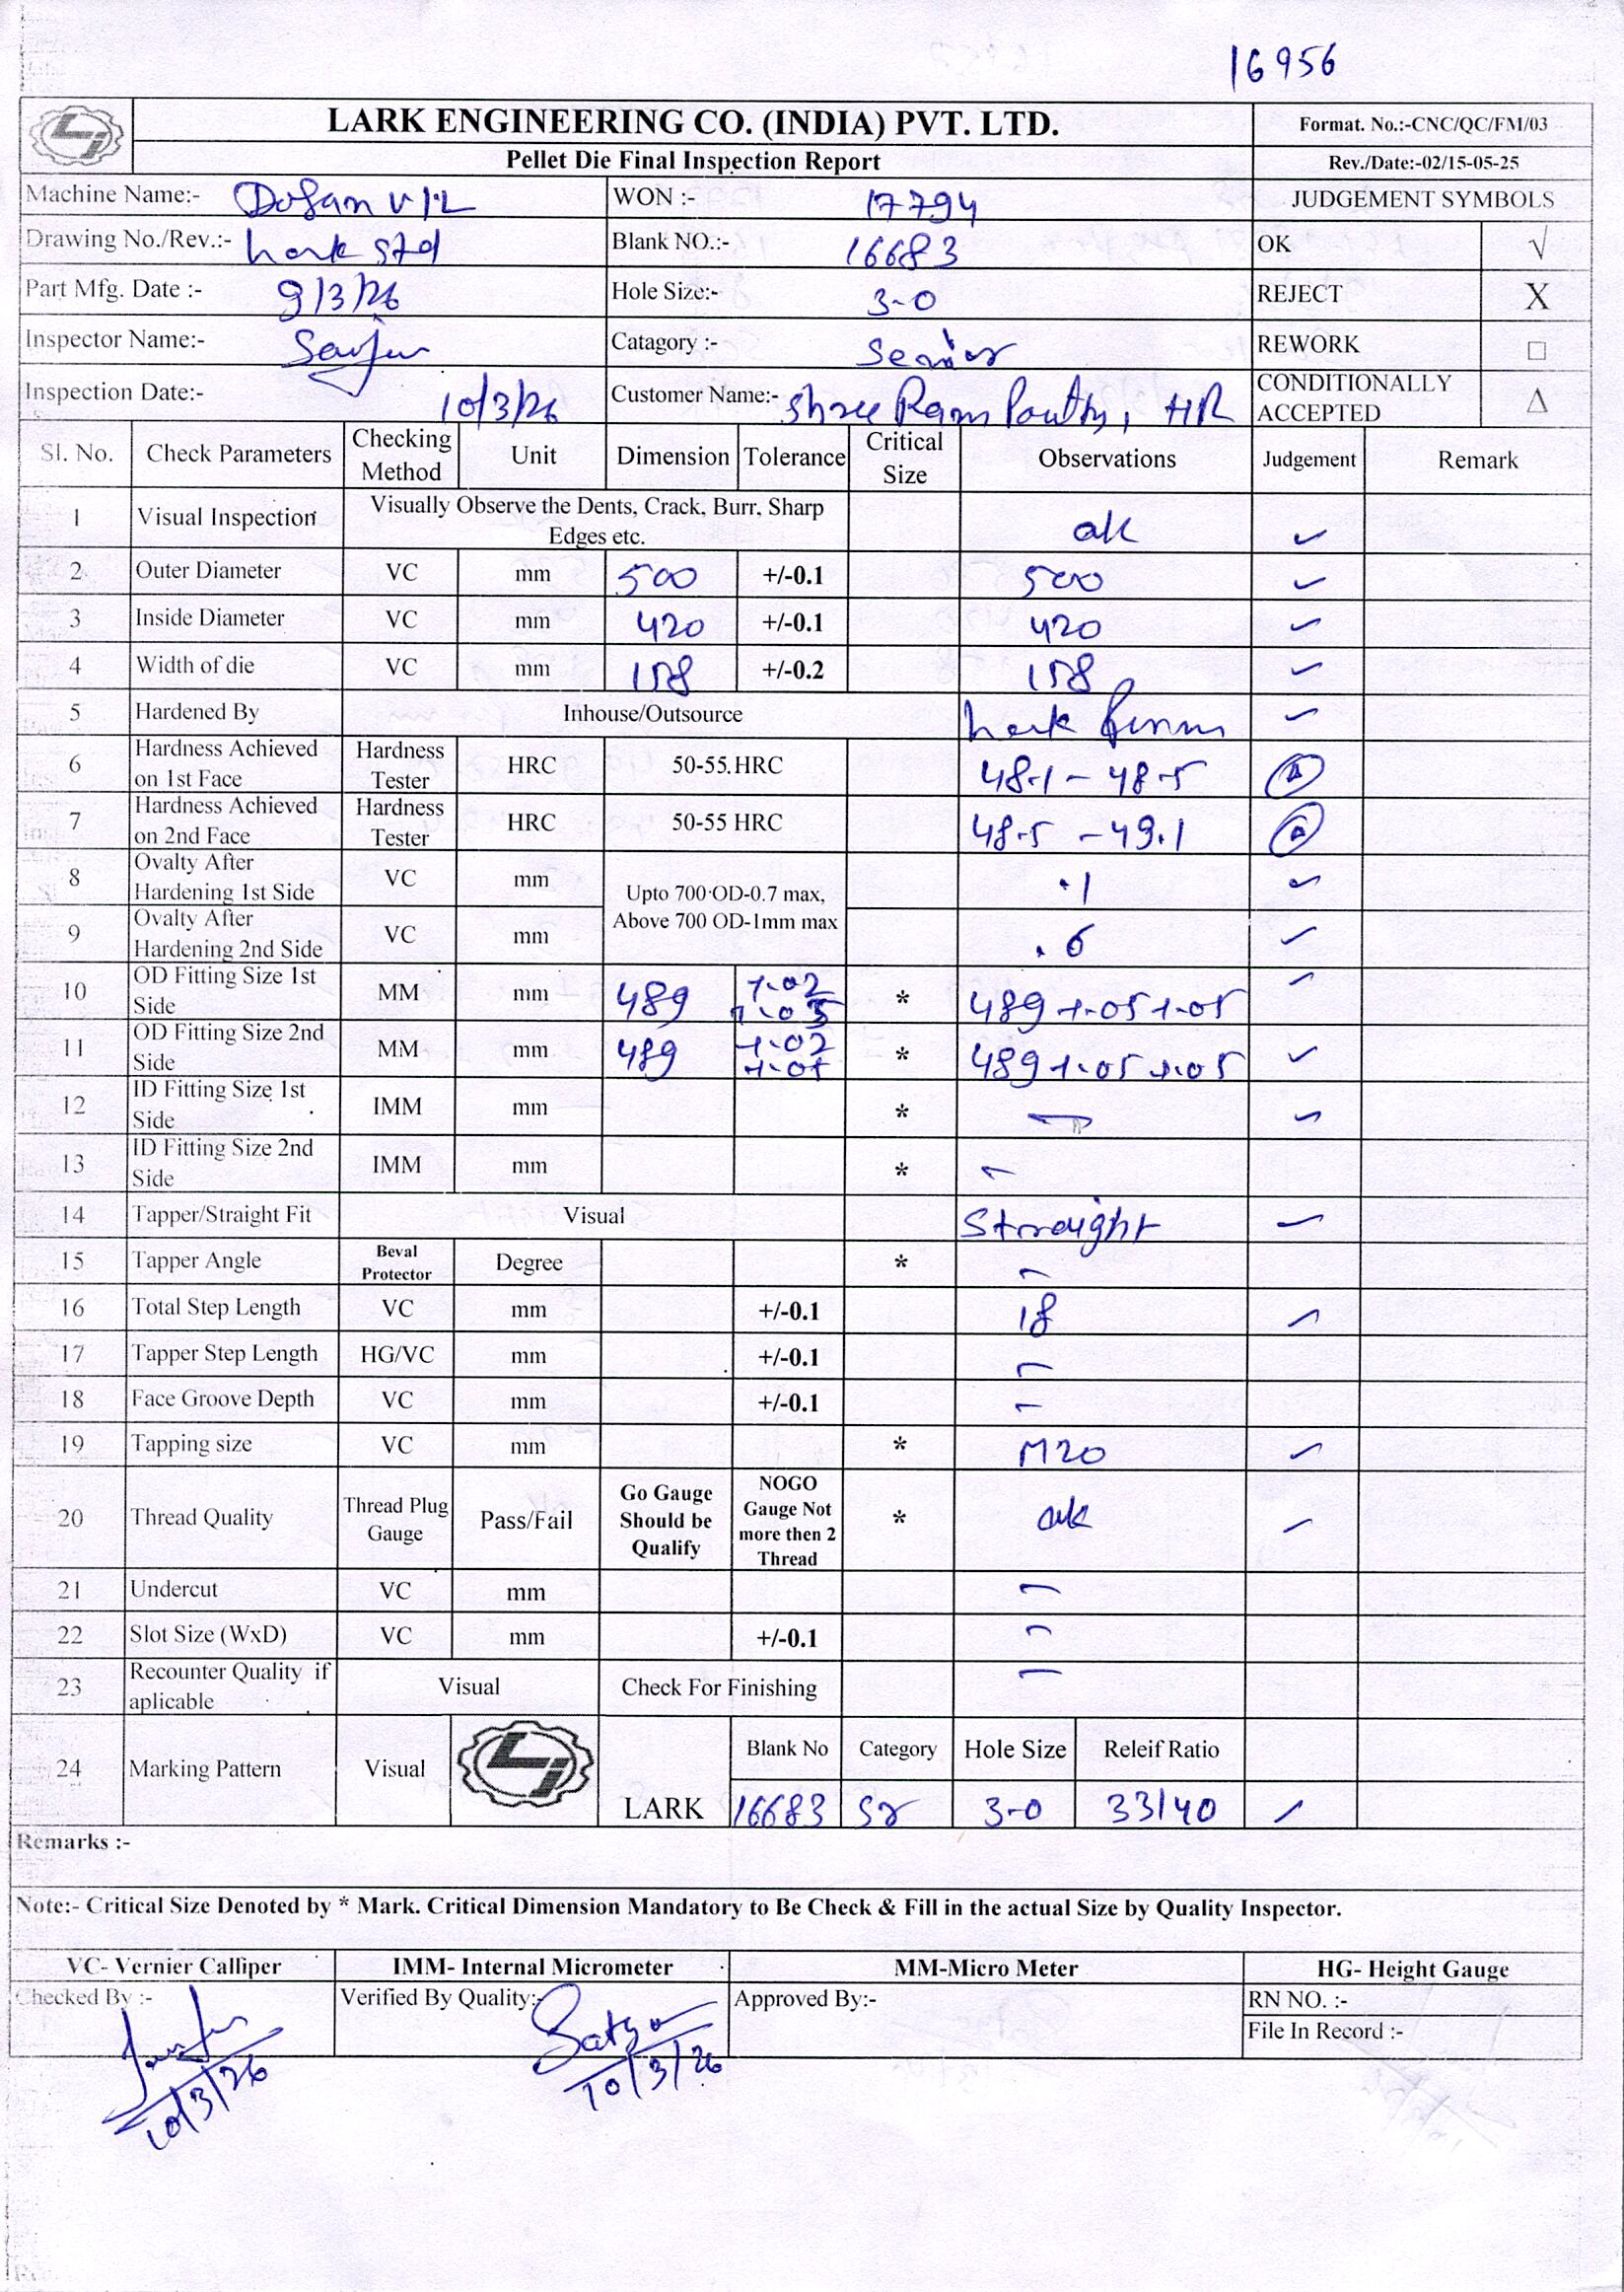 16956
LARK ENGINEERING CO. (INDIA) PVT. LTD.
Format. No.:-CNC/QC/FM/03
Pellet Die Final Inspection Report
Rev./Date:-02/15-05-25
Machine Name:- WON :- 17794 JUDGEMENT SYMBOLS
Drawing No./Rev.:- Lark std Blank NO.:- 16683 OK √
Part Mfg. Date :- 9/3/26 Hole Size:- 3-0 REJECT X
Inspector Name:- Catagory :- Senior REWORK □
Inspection Date:- 10/3/26 Customer Name:- Shree Ram , HR CONDITIONALLY ACCEPTED Δ
Sl. No. Check Parameters Checking Method Unit Dimension Tolerance Critical Size Observations Judgement Remark
1 Visual Inspection Visually Observe the Dents, Crack, Burr, Sharp Edges etc. ok ✓
2 Outer Diameter VC mm 500 +/-0.1 500 ✓
3 Inside Diameter VC mm 420 +/-0.1 420 ✓
4 Width of die VC mm 158 +/-0.2 158 ✓
5 Hardened By Inhouse/Outsource Lark ✓
6 Hardness Achieved on 1st Face Hardness Tester HRC 50-55 HRC 48.1 - 48.5 Δ
7 Hardness Achieved on 2nd Face Hardness Tester HRC 50-55 HRC 48.5 - 49.1 Δ
8 Ovalty After Hardening 1st Side VC mm Upto 700 OD-0.7 max, Above 700 OD-1mm max .1 ✓
9 Ovalty After Hardening 2nd Side VC mm .6 ✓
10 OD Fitting Size 1st Side MM mm 489 +.02 +.05 * 489 +.05 +.05 ✓
11 OD Fitting Size 2nd Side MM mm 489 +.02 * 489 +.05 +.05 ✓
12 ID Fitting Size 1st Side IMM mm * - ✓
13 ID Fitting Size 2nd Side IMM mm * -
14 Tapper/Straight Fit Visual Straight ✓
15 Tapper Angle Beval Protector Degree * -
16 Total Step Length VC mm +/-0.1 18 ✓
17 Tapper Step Length HG/VC mm +/-0.1 -
18 Face Groove Depth VC mm +/-0.1 -
19 Tapping size VC mm * M20 ✓
20 Thread Quality Thread Plug Gauge Pass/Fail Go Gauge Should be Qualify NOGO Gauge Not more then 2 Thread * ok ✓
21 Undercut VC mm -
22 Slot Size (WxD) VC mm +/-0.1 -
23 Recounter Quality if aplicable Visual Check For Finishing -
24 Marking Pattern Visual LARK Blank No Category Hole Size Releif Ratio
16683 Sr 3-0 33/40 ✓
Remarks :-
Note:- Critical Size Denoted by * Mark. Critical Dimension Mandatory to Be Check & Fill in the actual Size by Quality Inspector.
VC- Vernier Calliper IMM- Internal Micrometer MM-Micro Meter HG- Height Gauge
Checked By :- Verified By Quality:- Approved By:- RN NO. :-
File In Record :-
10/3/26 10/3/26